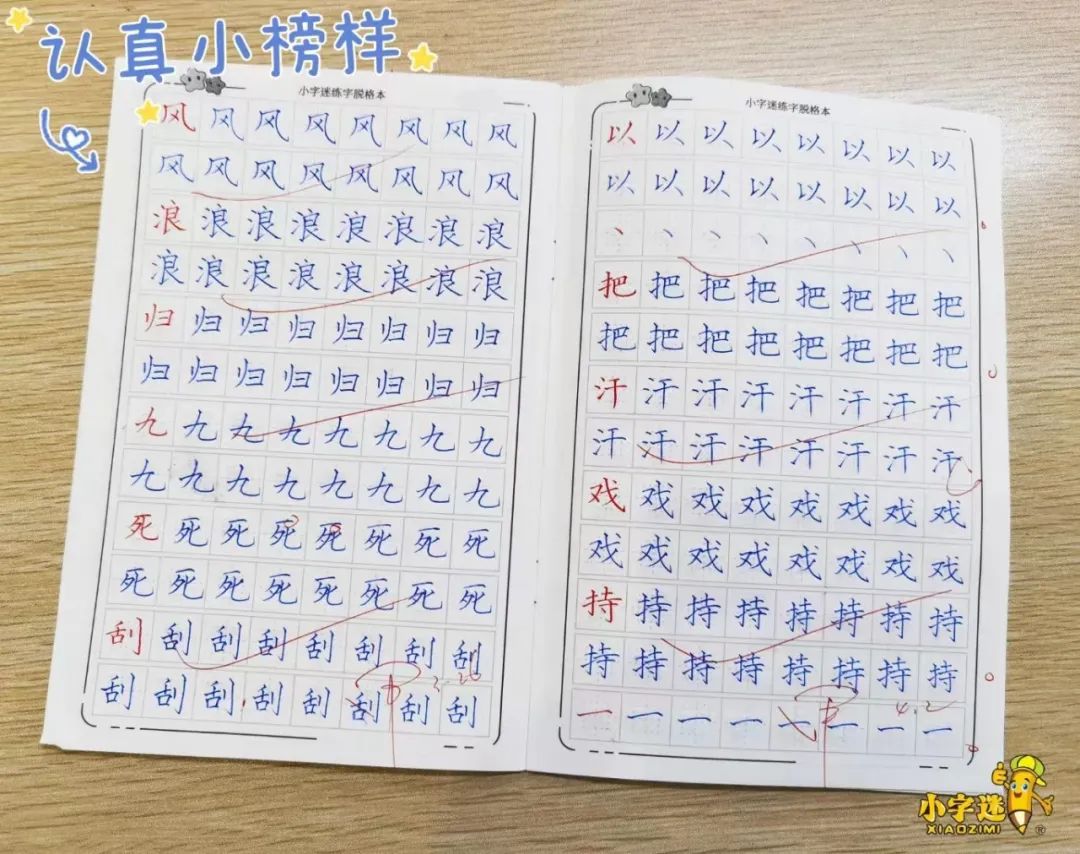 认真小榜样
小字迷练字脱格本
风风风风风风风风
风风风风风风风风
浪浪浪浪浪浪浪浪
浪浪浪浪浪浪浪浪
归归归归归归归归
归归归归归归归归
九九九九九九九九
九九九九九九九九
死死死死死死死死
死死死死死死死死
刮刮刮刮刮刮刮刮
刮刮刮刮刮刮刮刮
小字迷练字脱格本
以以以以以以以以
以以以以以以以以
丶丶丶丶丶丶丶丶
把把把把把把把把
把把把把把把把把
汗汗汗汗汗汗汗汗
汗汗汗汗汗汗汗汗
戏戏戏戏戏戏戏戏
戏戏戏戏戏戏戏戏
持持持持持持持持
持持持持持持持持
一一一一一一一一
4.2
小字迷
XIAOZIMI